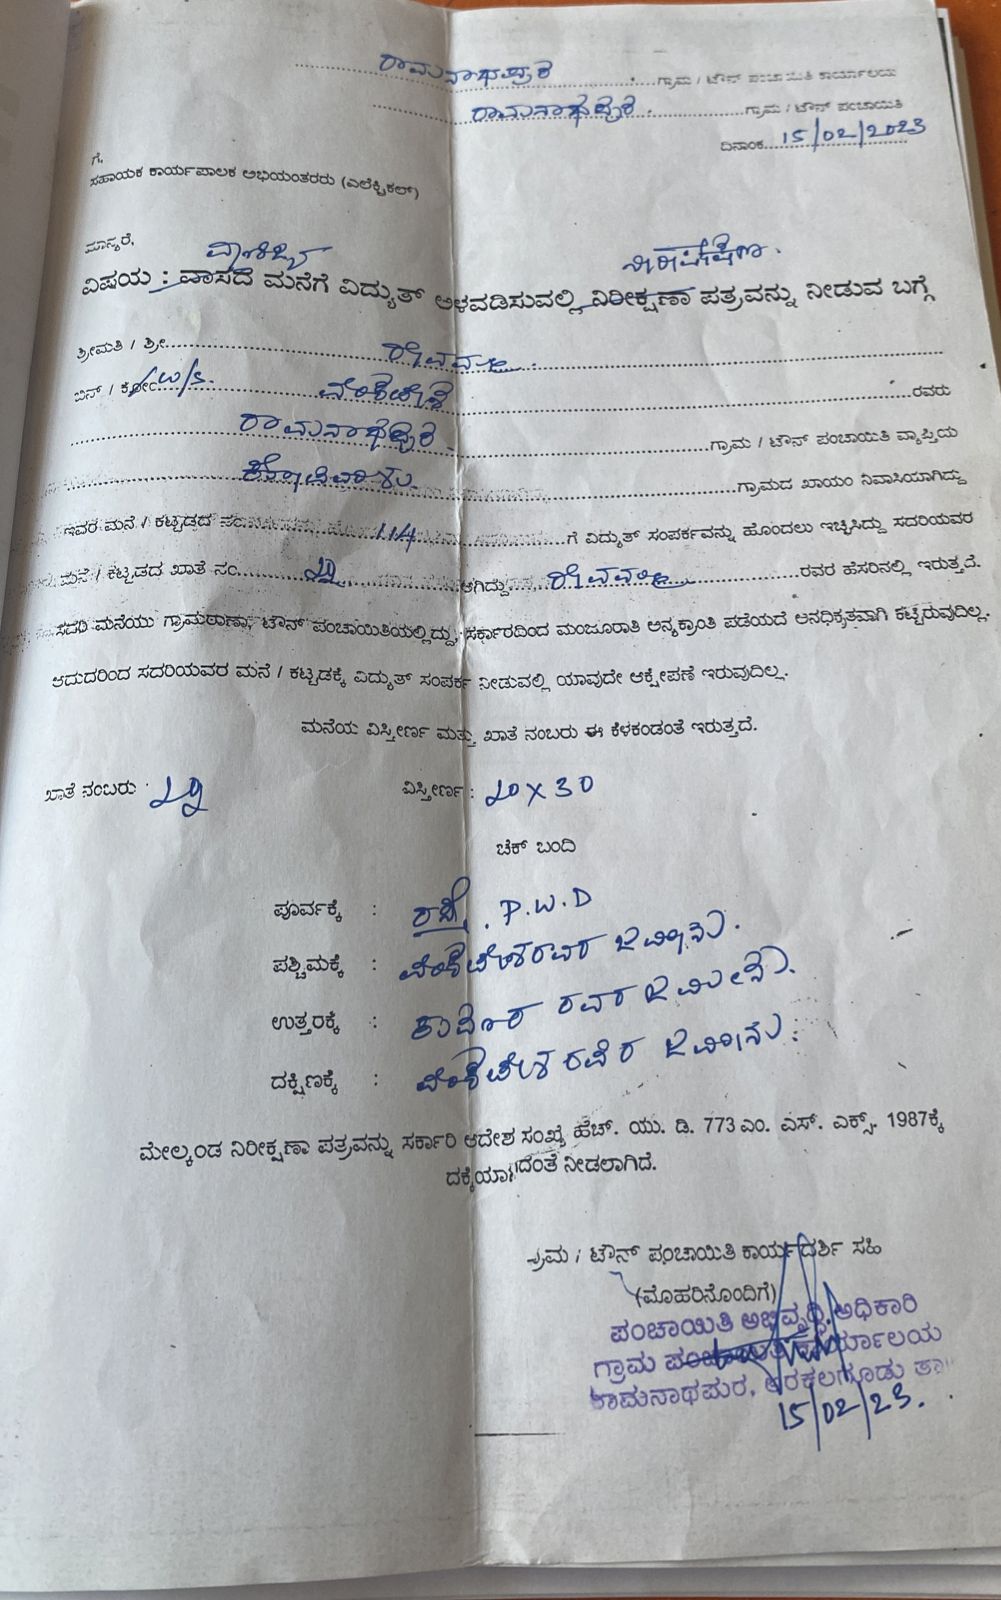 ರಾಮನಾಥಪುರ ಗ್ರಾಮ / ಟೌನ್ ಪಂಚಾಯಿತಿ ಕಾರ್ಯಾಲಯ
ರಾಮನಾಥಪುರ ಗ್ರಾಮ / ಟೌನ್ ಪಂಚಾಯಿತಿ
ದಿನಾಂಕ 15/02/2023
ಗೆ,
ಸಹಾಯಕ ಕಾರ್ಯಪಾಲಕ ಅಭಿಯಂತರರು (ಎಲೆಕ್ಟ್ರಿಕಲ್)
ಮಾನ್ಯರೆ,
ವಾಣಿಜ್ಯ ನಿರಾಪೇಕ್ಷಣಾ
ವಿಷಯ : ವಾಸದ ಮನೆಗೆ ವಿದ್ಯುತ್ ಅಳವಡಿಸುವಲ್ಲಿ ನಿರೀಕ್ಷಣಾ ಪತ್ರವನ್ನು ನೀಡುವ ಬಗ್ಗೆ
ಶ್ರೀಮತಿ / ಶ್ರೀ ರೇವಣ್ಣ
ಬಿನ್ / ಕೋಂ W/s. ವೆಂಕಟೇಶ ರವರು
ರಾಮನಾಥಪುರ ಗ್ರಾಮ / ಟೌನ್ ಪಂಚಾಯಿತಿ ವ್ಯಾಪ್ತಿಯ
ಗ್ರಾಮದ ಖಾಯಂ ನಿವಾಸಿಯಾಗಿದ್ದು
ಇವರ ಮನೆ / ಕಟ್ಟಡದ 114 ಗೆ ವಿದ್ಯುತ್ ಸಂಪರ್ಕವನ್ನು ಹೊಂದಲು ಇಚ್ಛಿಸಿದ್ದು ಸದರಿಯವರ
ಮನೆ / ಕಟ್ಟಡದ ಖಾತೆ ನಂ. ೨೨ ಆಗಿದ್ದು ರವರ ಹೆಸರಿನಲ್ಲಿ ಇರುತ್ತದೆ.
ಸದರಿ ಮನೆಯು ಗ್ರಾಮಠಾಣಾ, ಟೌನ್ ಪಂಚಾಯಿತಿಯಲ್ಲಿದ್ದು, ಸರ್ಕಾರದಿಂದ ಮಂಜೂರಾತಿ ಅನ್ಯಕ್ರಾಂತಿ ಪಡೆಯದೆ ಅನಧಿಕೃತವಾಗಿ ಕಟ್ಟಿರುವುದಿಲ್ಲ.
ಆದುದರಿಂದ ಸದರಿಯವರ ಮನೆ / ಕಟ್ಟಡಕ್ಕೆ ವಿದ್ಯುತ್ ಸಂಪರ್ಕ ನೀಡುವಲ್ಲಿ ಯಾವುದೇ ಆಕ್ಷೇಪಣೆ ಇರುವುದಿಲ್ಲ.
ಮನೆಯ ವಿಸ್ತೀರ್ಣ ಮತ್ತು ಖಾತೆ ನಂಬರು ಈ ಕೆಳಕಂಡಂತೆ ಇರುತ್ತದೆ.
ಖಾತೆ ನಂಬರು ೨೨ ವಿಸ್ತೀರ್ಣ : 20 X 30
ಚೆಕ್ ಬಂದಿ
ಪೂರ್ವಕ್ಕೆ : ರಸ್ತೆ. P.W.D
ಪಶ್ಚಿಮಕ್ಕೆ : ವೆಂಕಟೇಶರವರ ಜಮೀನು.
ಉತ್ತರಕ್ಕೆ : ರವರ ಜಮೀನು.
ದಕ್ಷಿಣಕ್ಕೆ : ವೆಂಕಟೇಶ ರವರ ಜಮೀನು.
ಮೇಲ್ಕಂಡ ನಿರೀಕ್ಷಣಾ ಪತ್ರವನ್ನು ಸರ್ಕಾರಿ ಆದೇಶ ಸಂಖ್ಯೆ ಹೆಚ್. ಯು. ಡಿ. 773 ಎಂ. ಎಸ್. ಎಕ್ಸ್. 1987ಕ್ಕೆ
ದಂತೆ ನೀಡಲಾಗಿದೆ.
ಗ್ರಾಮ / ಟೌನ್ ಪಂಚಾಯಿತಿ ಕಾರ್ಯದರ್ಶಿ ಸಹಿ
(ಮೊಹರಿನೊಂದಿಗೆ)
ಪಂಚಾಯಿತಿ ಅಭಿವೃದ್ಧಿ ಅಧಿಕಾರಿ
ಗ್ರಾಮ ಪಂಚಾಯಿತಿ ಕಾರ್ಯಾಲಯ
ರಾಮನಾಥಪುರ, ಅರಕಲಗೂಡು ತಾ
15/02/23.